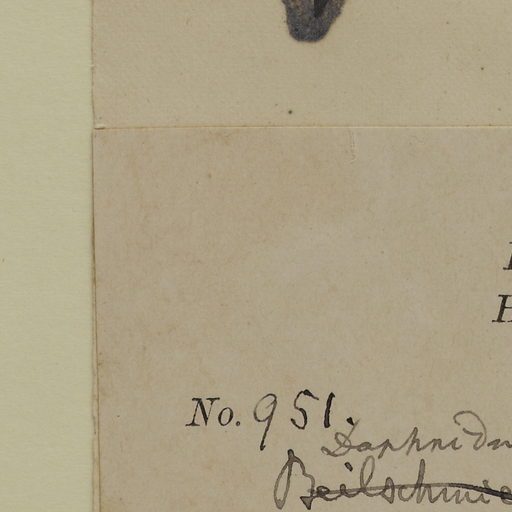 H
No. 951.
Daphnidi
Beilschmie